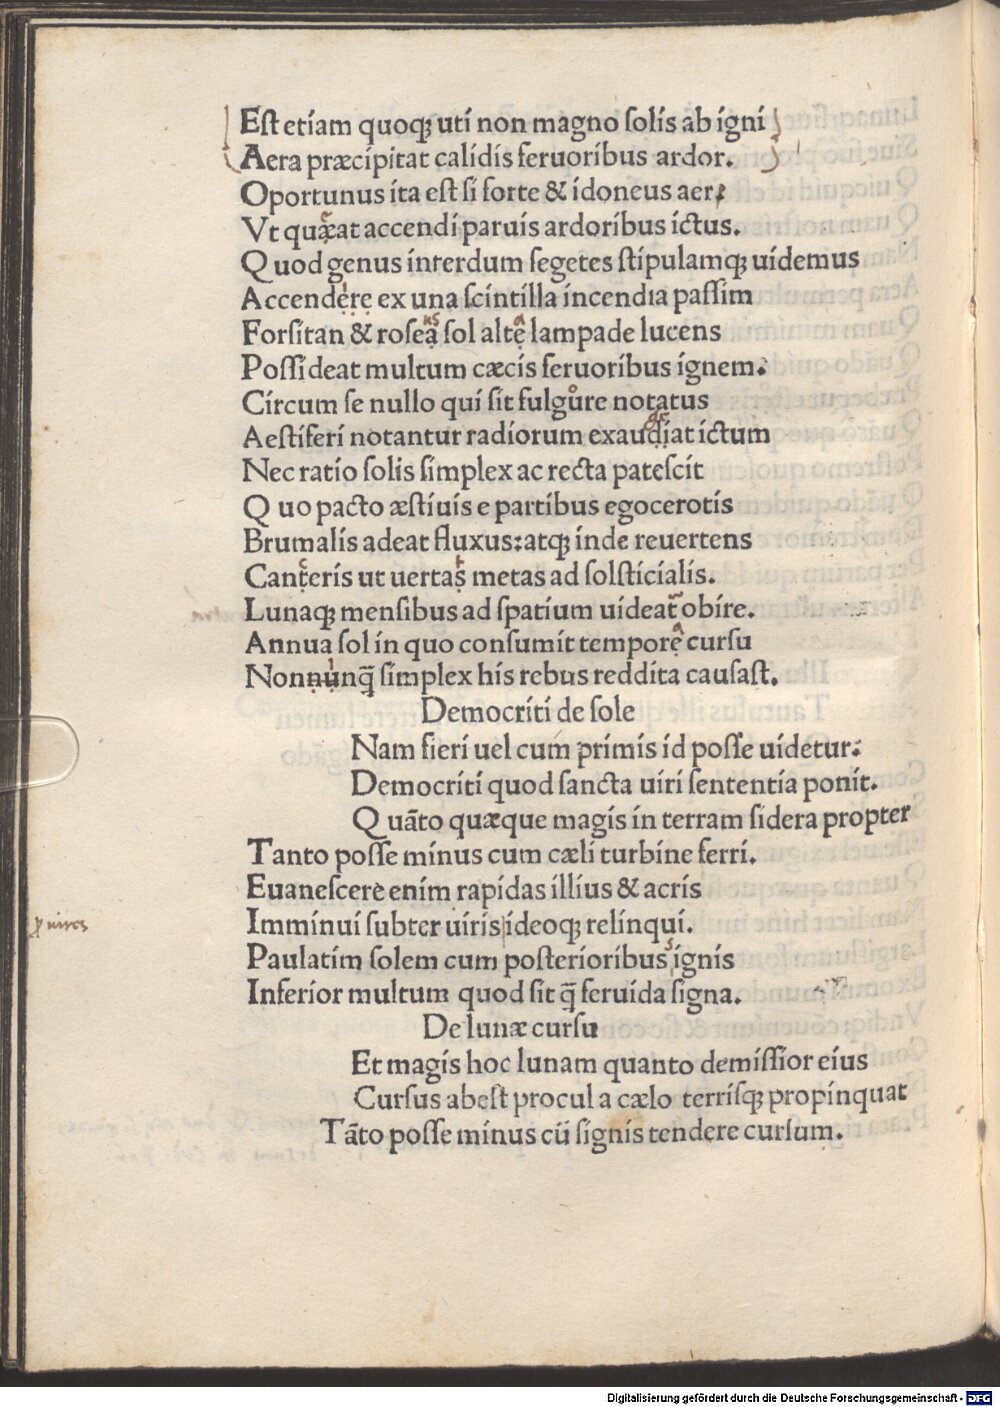 Est etiam quoq; uti non magno solis ab igni
Aera præcipitat calidis feruoribus ardor.
Oportunus ita est si forte & idoneus aer:
Vt quæat accendi paruis ardoribus ictus.
Quod genus interdum segetes stipulamq; uidemus
Accendere ex una scintilla incendia passim
Forsitan & rosea sol alte lampade lucens
Possideat multum cæcis feruoribus ignem.
Circum se nullo qui sit fulgure notatus
Aestiferi notantur radiorum exaudiat ictum
Nec ratio solis simplex ac recta patescit
Quo pacto æstiuis e partibus egocerotis
Brumalis adeat fluxus: atq; inde reuertens
Canteris ut uertas metas ad solsticialis.
Lunaq; mensibus ad spatium uideat obire.
Annua sol in quo consumit tempore cursu
Nonnunq̃ simplex his rebus reddita causast.
Democriti de sole
Nam fieri uel cum primis id posse uidetur.
Democriti quod sancta uiri sententia ponit.
Quãto quæque magis in terram sidera propter
Tanto posse minus cum cæli turbine ferri.
Euanescere enim rapidas illius & acris
p uires
Imminui subter uiris ideoq; relinqui.
Paulatim solem cum posterioribus ignis
Inferior multum quod sit q̃ feruida signa.
De lunæ cursu
Et magis hoc lunam quanto demissior eius
Cursus abest procul a cælo terrisq; propinquat
Tãto posse minus cũ signis tendere cursum.
Digitalisierung gefördert durch die Deutsche Forschungsgemeinschaft - DFG